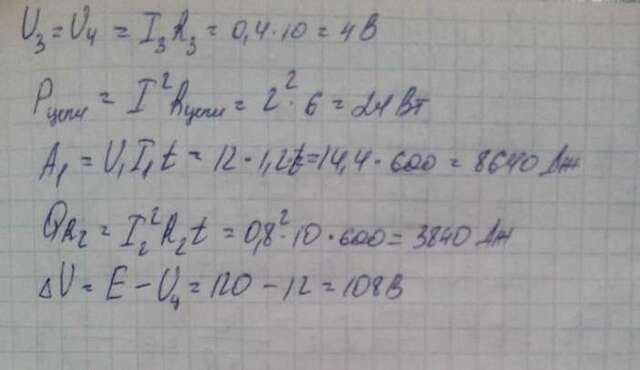 U₃ = U₄ = I₃R₃ = 0,4·10 = 4 В
Pцепи = I²Rцепи = 2²·6 = 24 Вт
A₁ = U₁I₁t = 12·1,2·t = 14,4·600 = 8640 Дж
QR₂ = I₂²R₂t = 0,8²·10·600 = 3840 Дж
ΔU = E − U₄ = 120 − 12 = 108 В